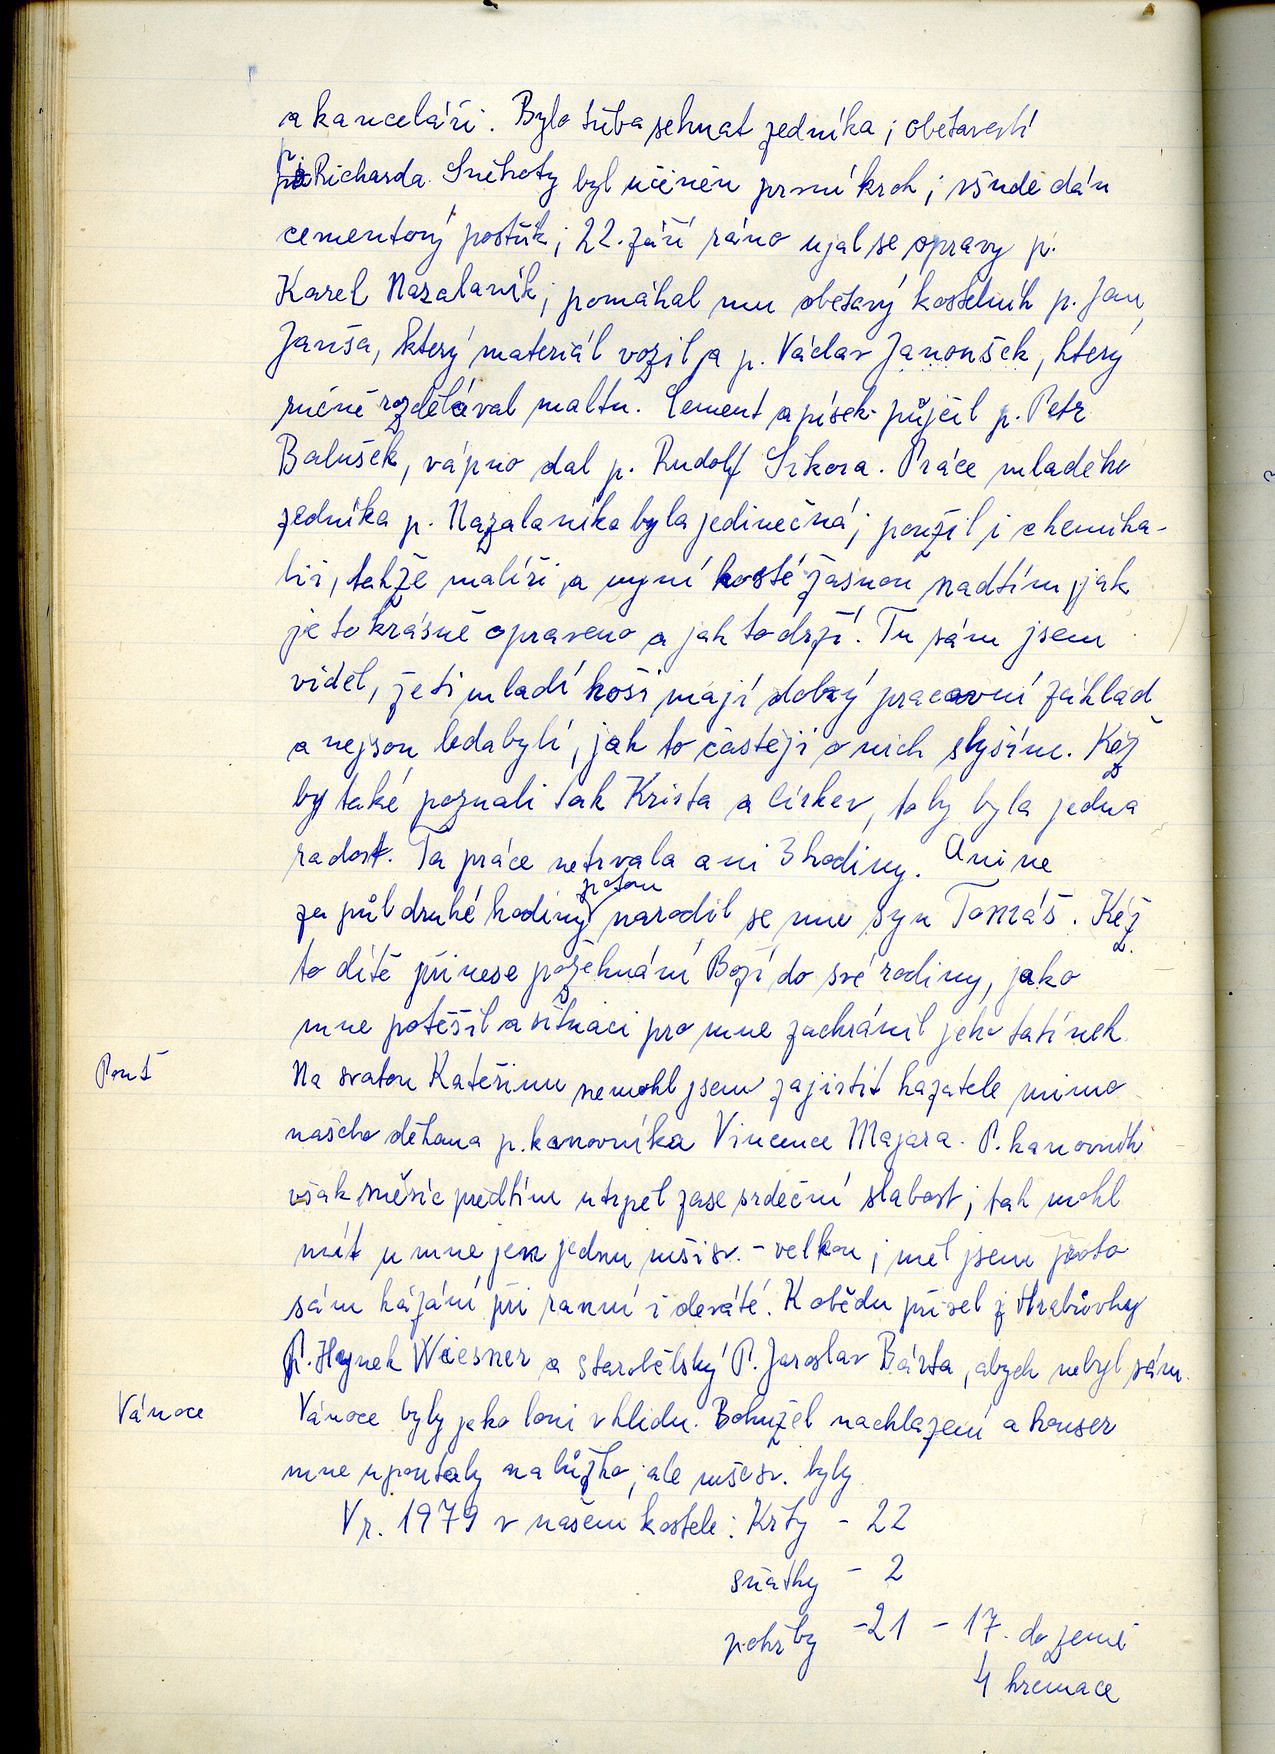 a kanceláři. Bylo třeba sehnat zedníka; obětavostí
p. Richarda Sněhoty byl učiněn první krok; všude dán
cementový postřik; 22. září ráno ujal se opravy p.
Karel Nazalaník; pomáhal mu obětavý kostelník p. Jan
Janša, který materiál vozil a p. Václav Janoušek, který
ručně rozdělával maltu. Cement a písek půjčil p. Petr
Balušek, vápno dal p. Rudolf Sikora. Práce mladého
zedníka p. Nazalaníka byla jedinečná; použil i chemika-
lií, takže malíři a nyní hosté žasnou nad tím, jak
je to krásně opraveno a jak to drží. Tu sám jsem
viděl, že ti mladí hoši mají dobrý pracovní základ
a nejsou ledabylí, jak to častěji o nich slyšíme. Kéž
by také poznali tak Krista a církev, to by byla jedna
radost. Ta práce netrvala ani 3 hodiny. Ani ne
za půl druhé hodiny potom narodil se mu syn Tomáš. Kéž
to dítě přinese požehnání Boží do své rodiny, jako
mne potěšil a situaci pro mne zachránil jeho tatínek.
Pouť
Na svatou Kateřinu nemohl jsem zajistit kazatele mimo
našeho děkana p. kanovníka Vincence Majara. P. kanovník
však měsíc předtím utrpěl zase srdeční slabost; tak mohl
mít u mne jen jednu mši sv. - velkou; měl jsem proto
sám kázání při ranní i deváté. K obědu přišel z Hrabůvky
P. Hynek Wiesner a starobělský P. Jaroslav Bárta, abych nebyl sám.
Vánoce
Vánoce byly jako loni v klidu. Bohužel nachlazení a houser
mne upoutaly na lůžko; ale mše sv. byly.
V r. 1979 v našem kostele: Křty - 22
sňatky - 2
pohřby - 21 - 17 do země
4 kremace